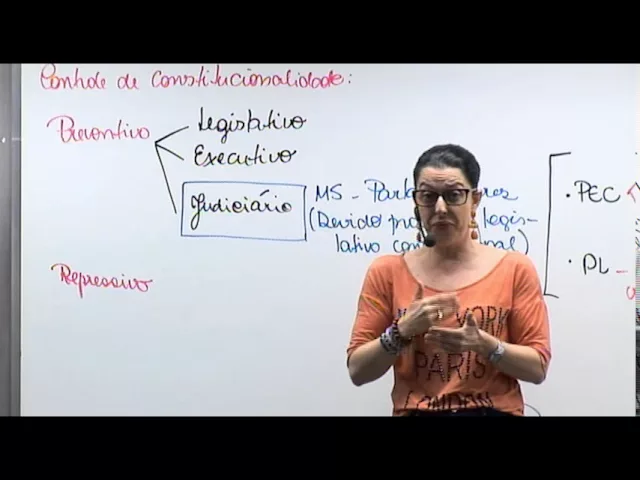 Controle de Constitucionalidade:
Preventivo
Legislativo
Executivo
Judiciário
MS - Parlamentares
(Devido pro legis-
lativo
Repressivo
. PEC
. PL
YORK
PARIS
LONDON